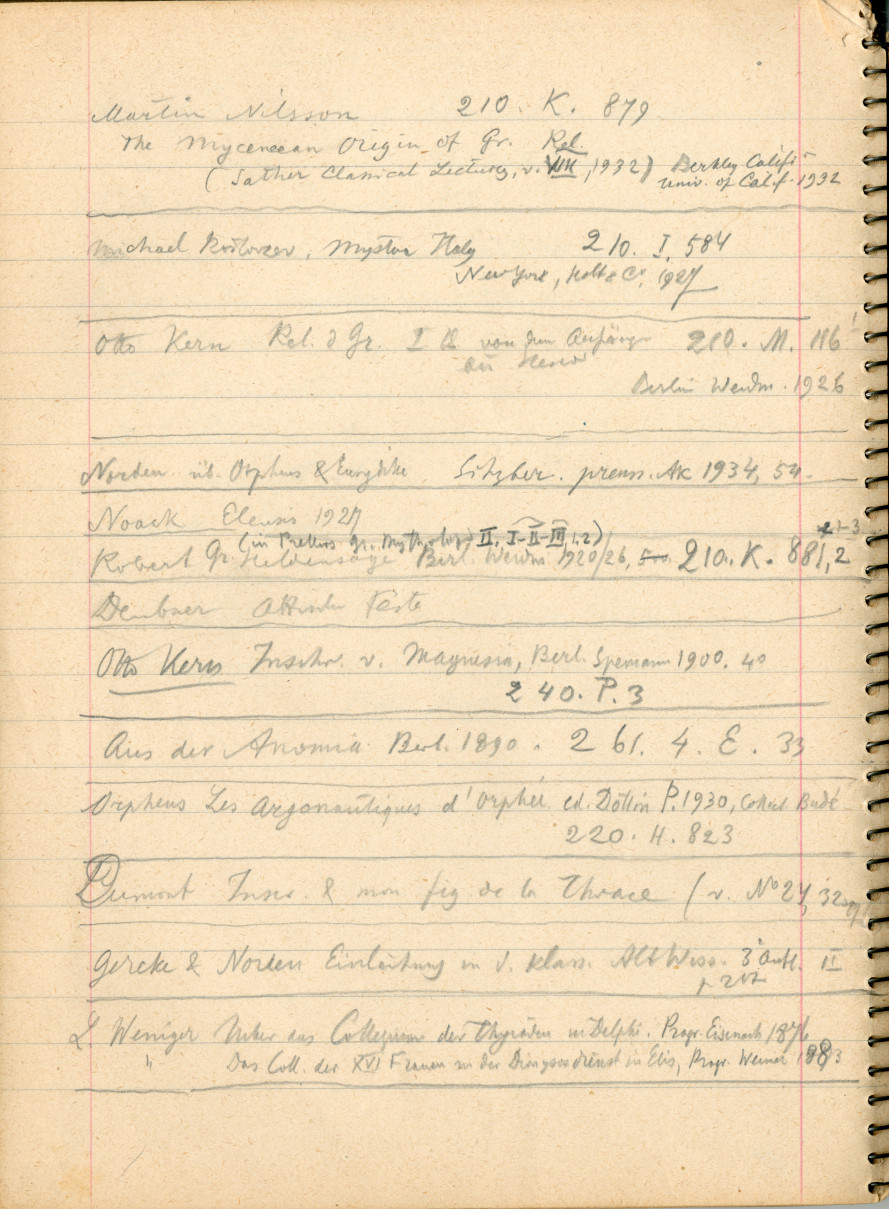 Martin Nilsson 210. K. 879
The Mycenaean Origin of Gr. Rel.
(Sather Classical Lectures, v. VIII, 1932) Berkley Calif.
Univ. of Calif. 1932
Michael Rostovzev, Mystic Italy 210. I. 584
New York, Holt & Co. 1927
Otto Kern Rel. d Gr. I von den Anfängen 210. M. 116
Berlin Weidm. 1926
Norden üb. Orpheus & Eurydike Sitzber. preuss. Ak 1934, 54.
Noack Eleusis 1927
(in Prellers gr. Mythologi II, I-II-III, 1.2) 1-3
Robert Gr. Heldensage Berl. Weidm. 1920/26, 210. K. 881,2
Deubner Attische Feste
Otto Kern Inschr. v. Magnesia, Berl. Spemann 1900. 40
240. P. 3
Aus der Anomia Berl. 1890. 261. 4. E. 33
Orpheus Les Argonautiques d'Orphée ed. Dottin P. 1930, Collect Budé
220. H. 823
Dumont Inscr. & mon fig de la Thrace (v. No 27, 32
Gercke & Norden Einleitung in d. klass. Alt Wiss. 3 Aufl. II
L. Weniger Ueber das Collegium der Thyiaden in Delphi. Progr. Eisenach 1876
" Das Coll. der XVI Frauen in der Dionysosdienst in Elis, Progr. Weimar 1883